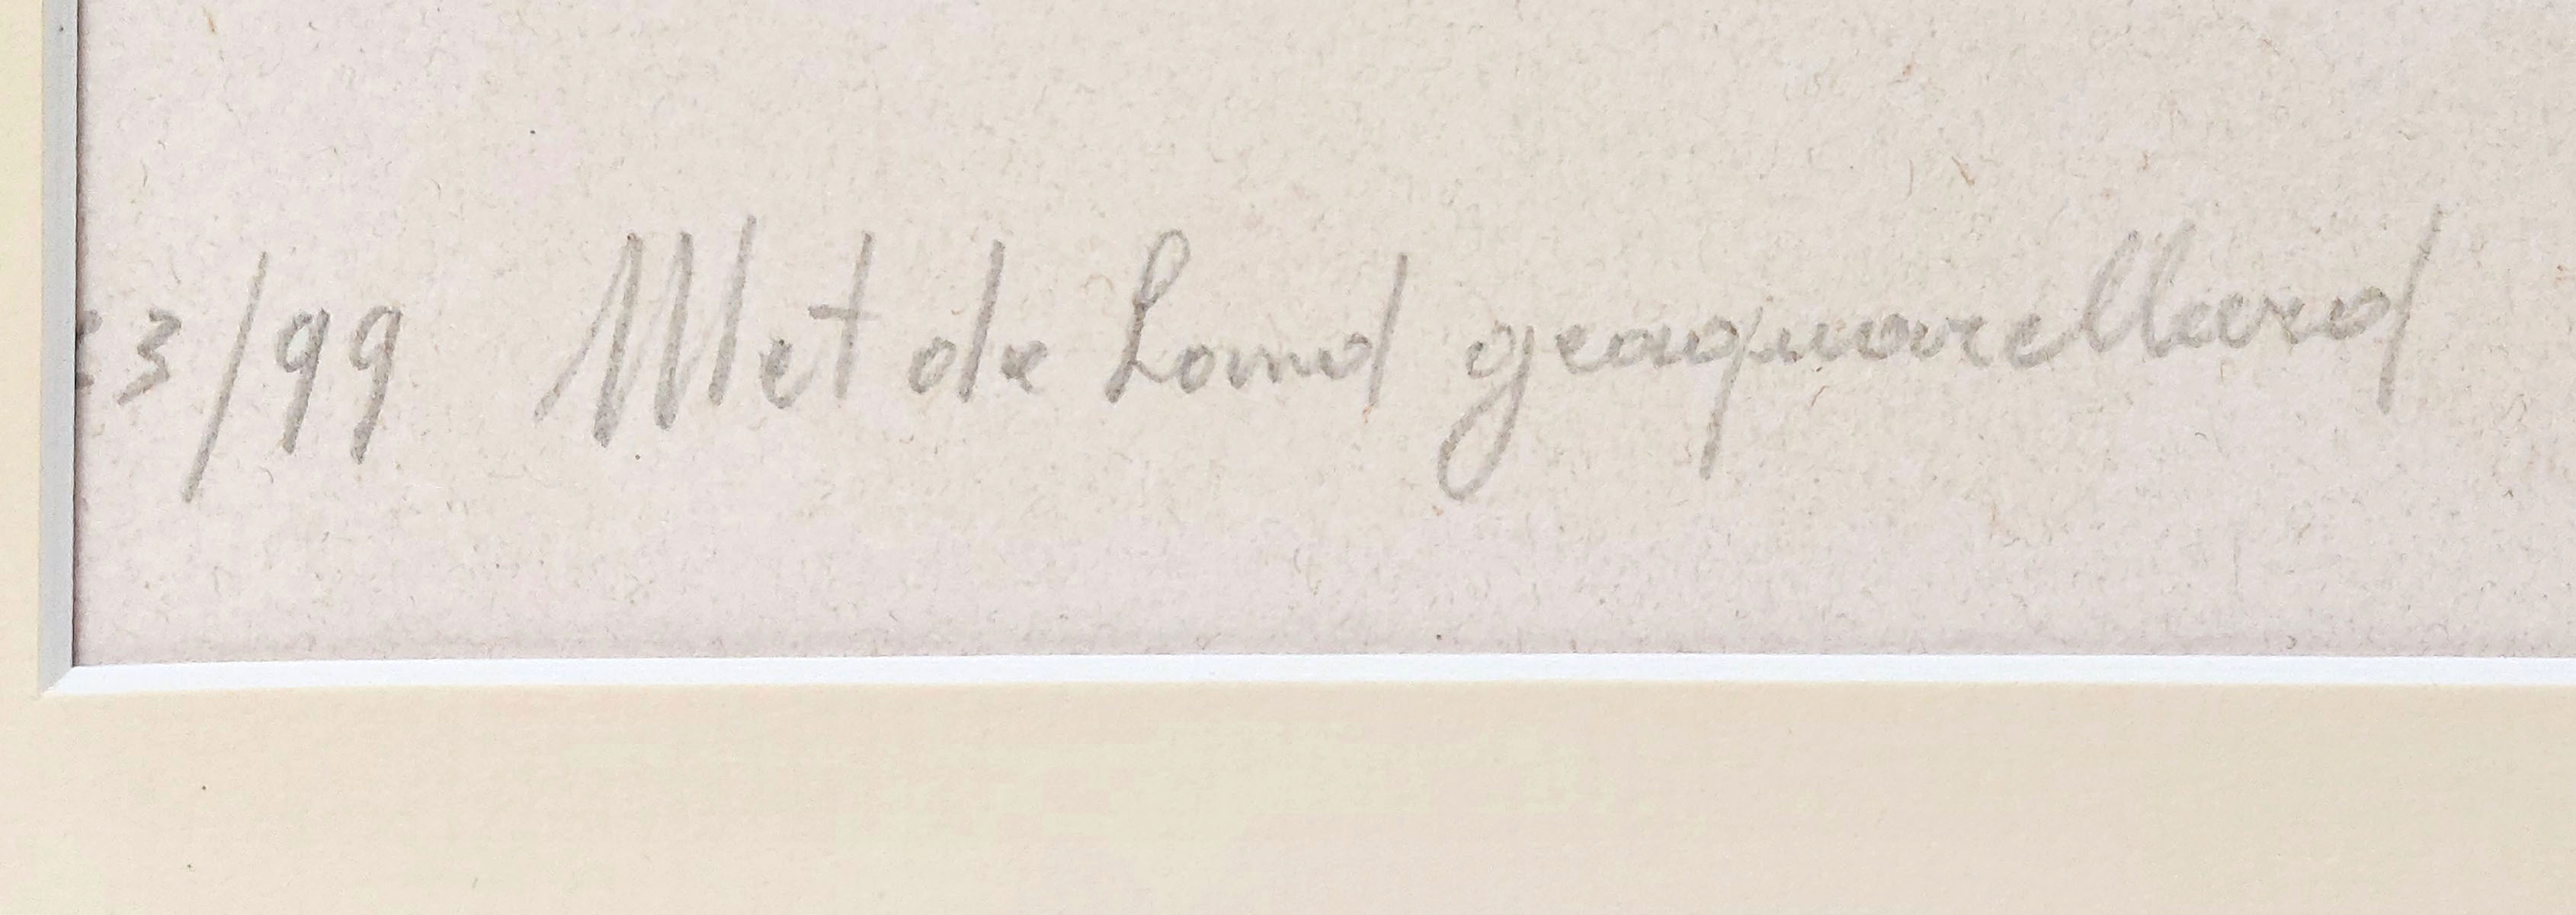 3/99 Met de hand geaquarelleerd